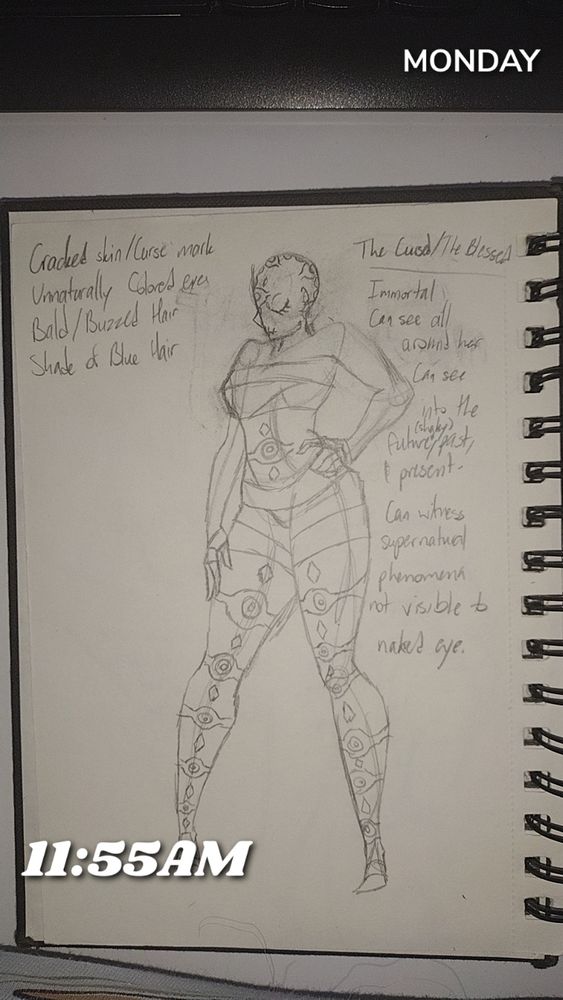 MONDAY
Cracked skin/Curse mark
Unnaturally Colored eyes
Bald/Buzzed Hair
Shade of Blue Hair
The Cursed/The Blessed
Immortal
Can see all
around her
Can see
into the
(shaky)
future/past,
& present.
Can witness
supernatural
phenomena
not visible to
naked eye.
11:55AM